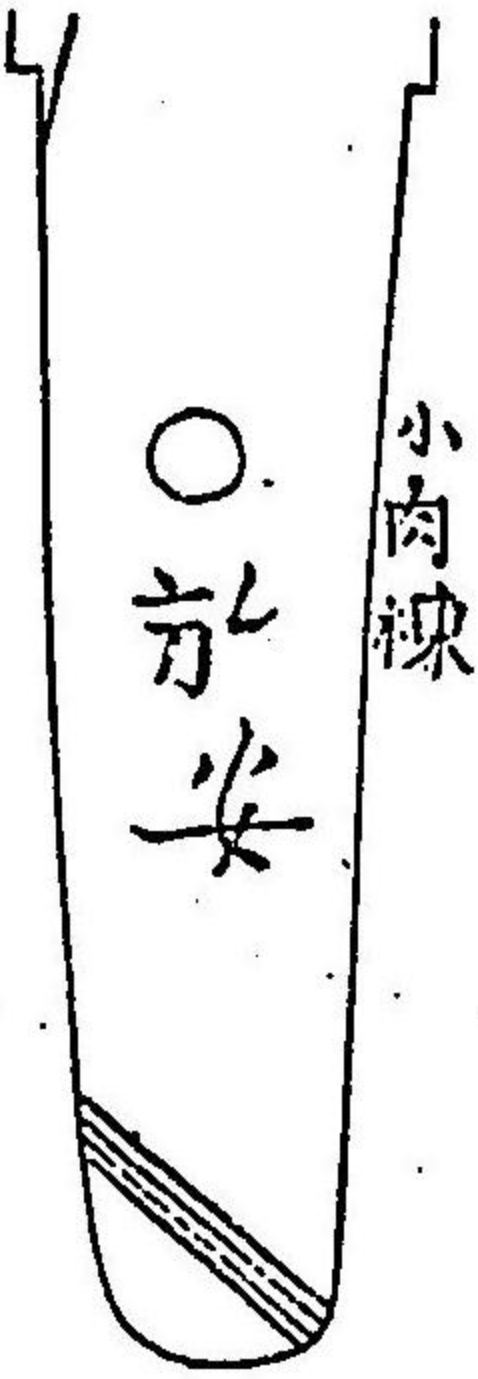 小肉棟
於安